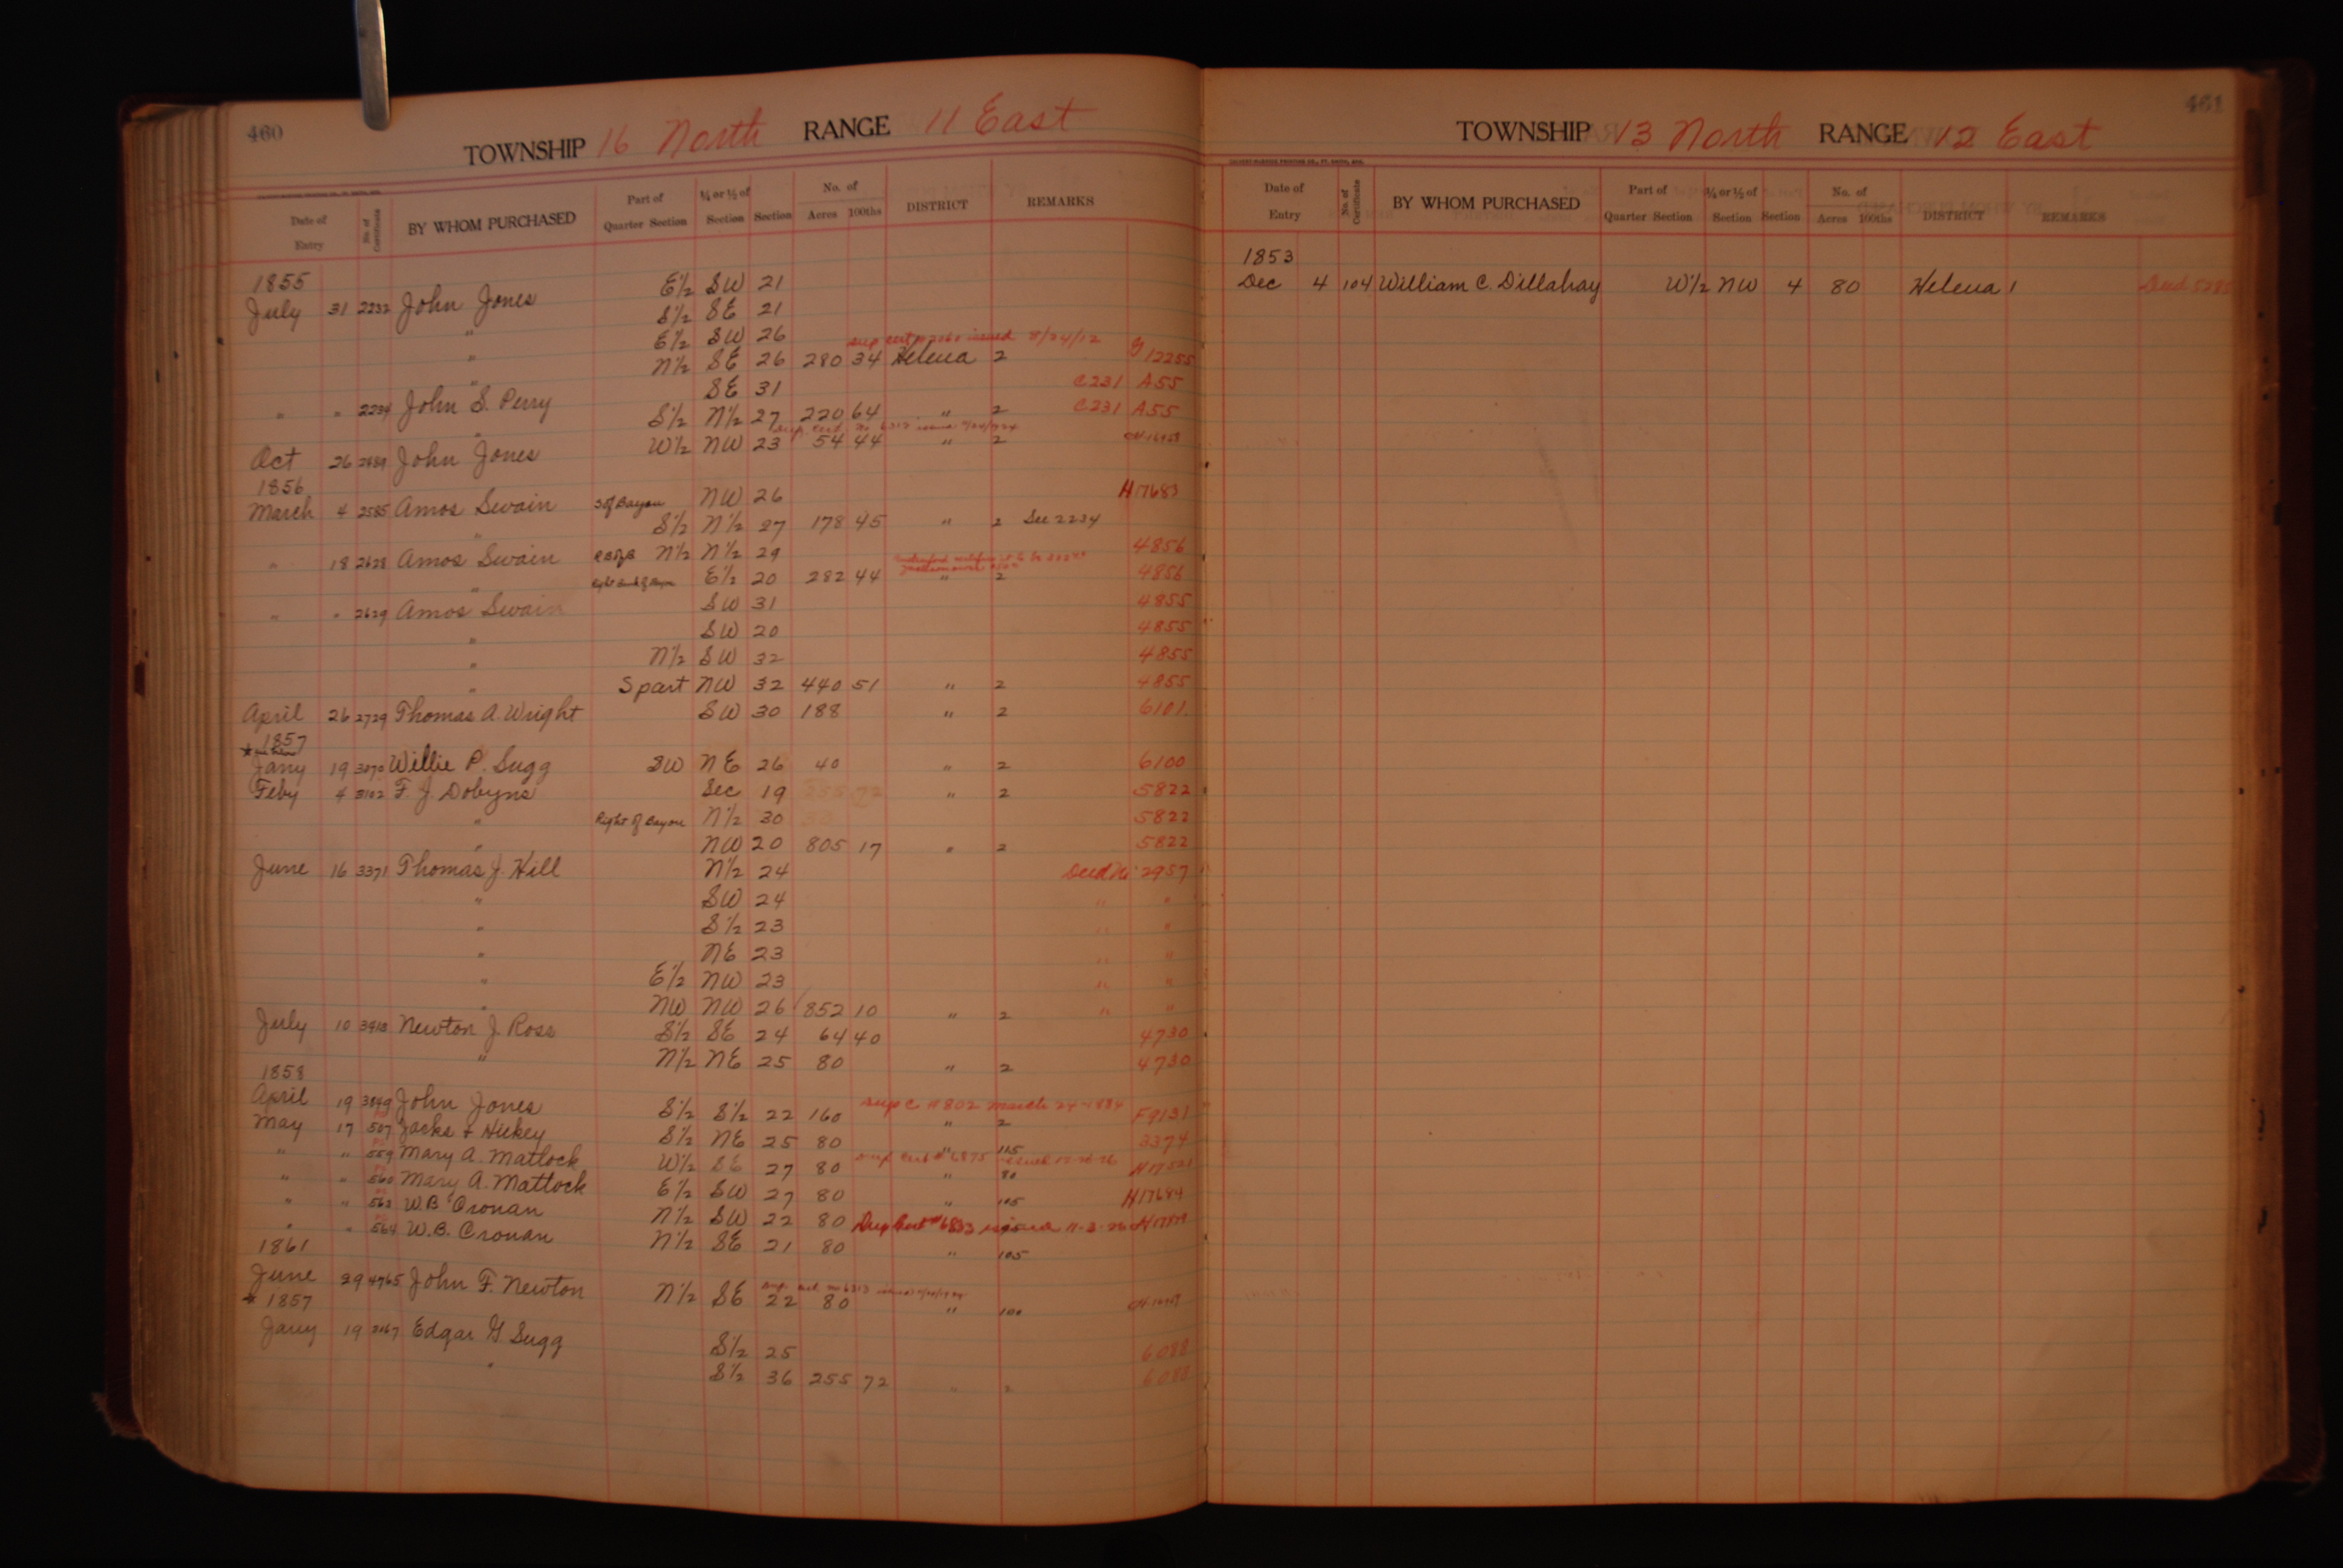 460
TOWNSHIP 16 North RANGE 11 East
Date of Entry No. of Certificate BY WHOM PURCHASED Part of Quarter Section ¼ or ½ of Section Section No. of Acres 100ths DISTRICT REMARKS
1855
July 31 2232 John Jones E½ SW 21
" S½ SE 21
" E½ SW 26 issued 8/24/12
" N½ SE 26 280 34 Helena 2 12255
" " 2234 John S. Perry SE 31 C231 A55
" S½ N½ 27 220 64 " 2 C231 A55
Oct 26 John Jones W½ NW 23 54 44 " 2
1856
March 4 2585 Amos Swain S of Bayou NW 26 H17683
" S½ N½ 27 178 45 " 2 See 2234
" 18 2628 Amos Swain N½ N½ 29 4856
" Right Bank of Bayou E½ 20 282 44 " 2 4856
" " 2629 Amos Swain SW 31 4855
" SW 20 4855
" N½ SW 32 4855
" S part NW 32 440 51 " 2 4855
April 26 2729 Thomas A. Wright SW 30 188 " 2 6101
1857
* Jany 19 3070 Willie P. Sugg SW NE 26 40 " 2 6100
Feby 4 3102 F. J. Dobyns Sec 19 " 2 5822
" Right of Bayou N½ 30 5822
" NW 20 805 17 " 2 5822
June 16 3371 Thomas J. Hill N½ 24 Deed No 2957
" SW 24 " "
" S½ 23 " "
" NE 23 " "
" E½ NW 23 " "
" NW NW 26 852 10 " 2 " "
July 10 3413 Newton J. Ross S½ SE 24 64 40 4730
" N½ NE 25 80 " 2 4730
1858
April 19 3849 John Jones S½ S½ 22 160 sup C # 802 March 24-1884 " 2 F9131
May 17 507 Jacks & Hickey S½ NE 25 80 " 115 3374
" " 559 Mary A. Matlock W½ SE 27 80 sup cert # 6875 issued " 80 H17521
" " 560 Mary A. Mattock E½ SW 27 80 " 105 H17684
" " 562 W.B. Cronan N½ SW 22 80 Dup Cert # 6833 issued 11-3-26
" " 564 W.B. Cronan N½ SE 21 80 " 105
1861
June 29 4765 John F. Newton N½ SE 22 80 " 100
* 1857
Jany 19 3067 Edgar G. Sugg S½ 25 6088
" S½ 36 255 72 " 2 6088
461
TOWNSHIP 13 North RANGE 12 East
Date of Entry No. of Certificate BY WHOM PURCHASED Part of Quarter Section ¼ or ½ of Section Section No. of Acres 100ths DISTRICT REMARKS
1853
Dec 4 104 William C. Dillahay W½ NW 4 80 Helena 1 Deed